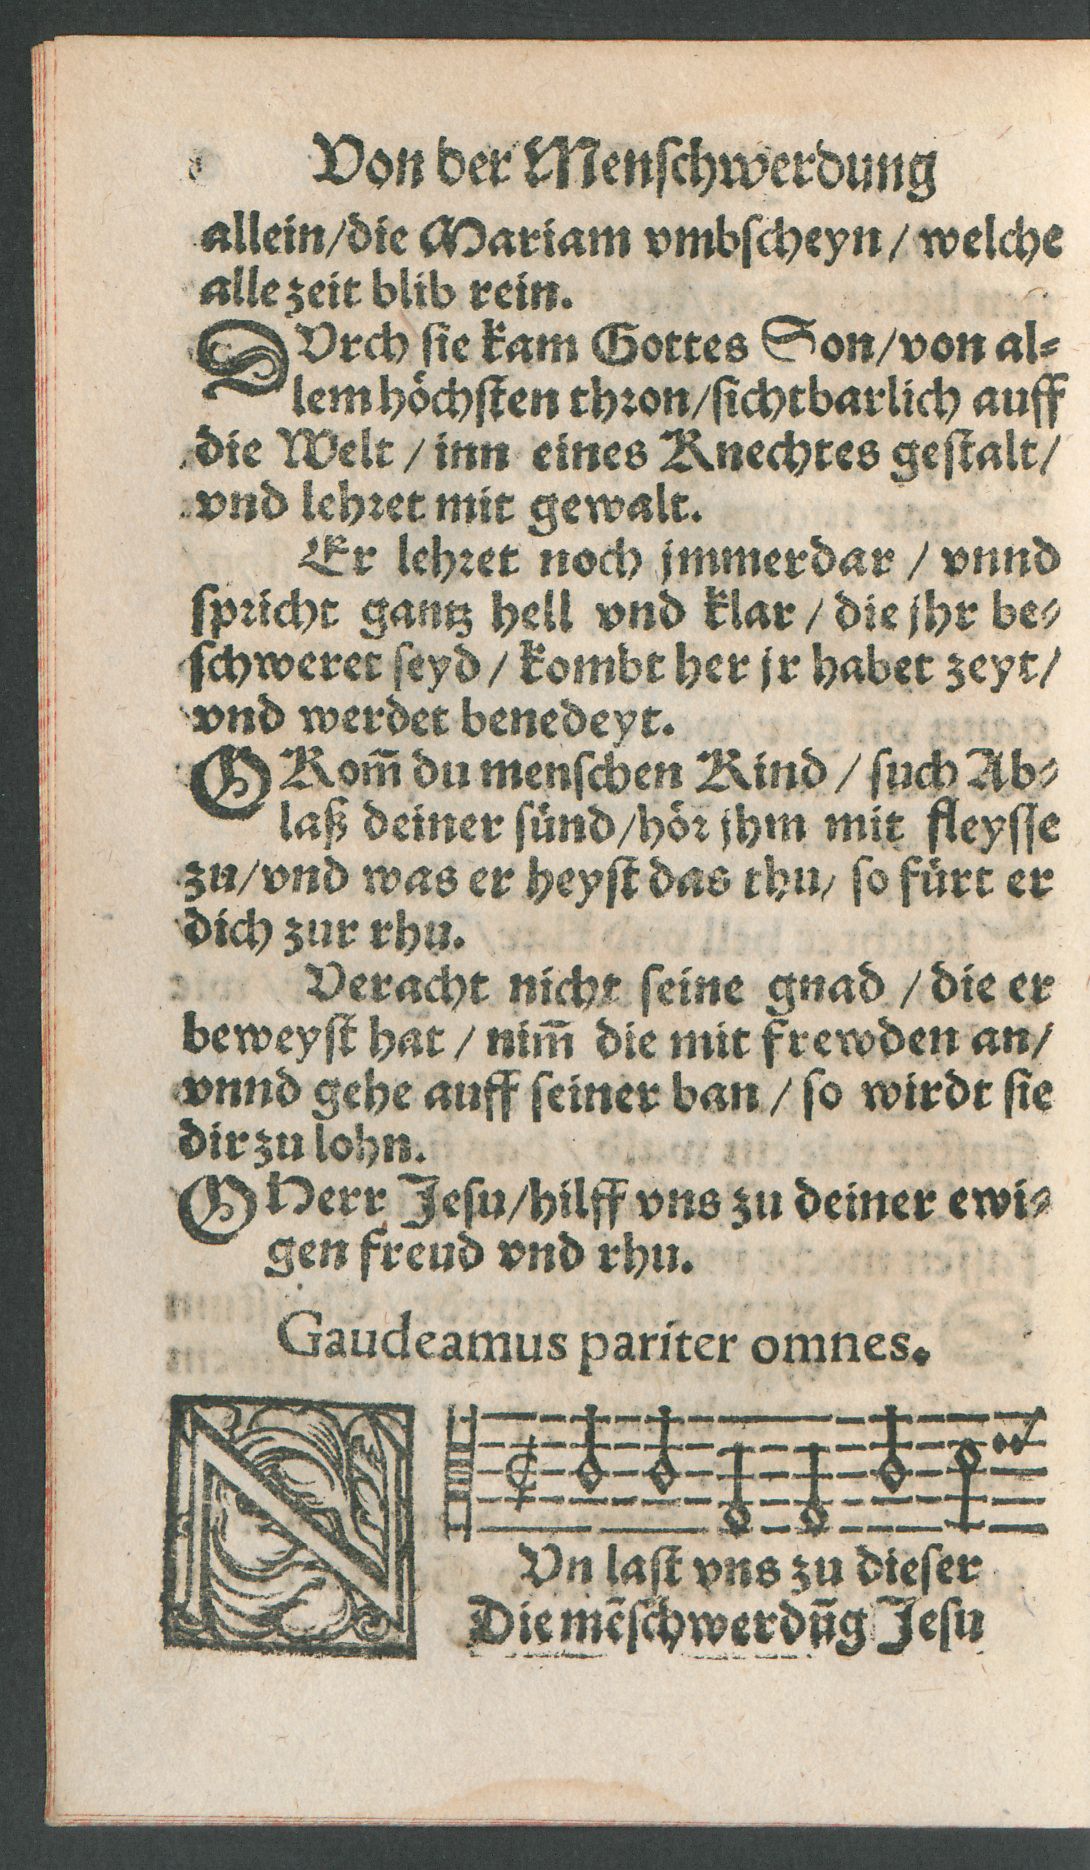 Von der Menschwerdung
allein/die Mariam vmbscheyn/ welche
alle zeit blib rein.
DVrch sie kam Gottes Son/von al-
lem höchsten thron/sichtbarlich auff
die Welt / inn eines Knechtes gestalt/
vnd lehret mit gewalt.
Er lehret noch jmmerdar / vnnd
spricht gantz hell vnd klar / die jhr be-
schweret seyd / kombt her jr habet zeyt/
vnd werdet benedeyt.
O Kom̄ du menschen Kind / such Ab-
laß deiner sünd/hör jhm mit fleysse
zu/vnd was er heyst das thu/ so fürt er
dich zur rhu.
Veracht nicht seine gnad / die er
beweyst hat / nim̄ die mit frewden an/
vnnd gehe auff seiner ban / so wirdt sie
dir zu lohn.
O Herr Jesu/hilff vns zu deiner ewi-
gen freud vnd rhu.
Gaudeamus pariter omnes.
NVn last vns zu dieser
Die mēschwerdūg Jesu